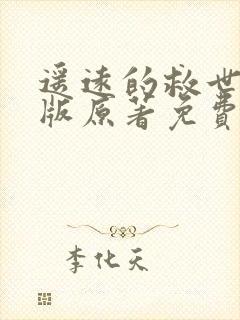 遥远的救世
版原著免费
李化天